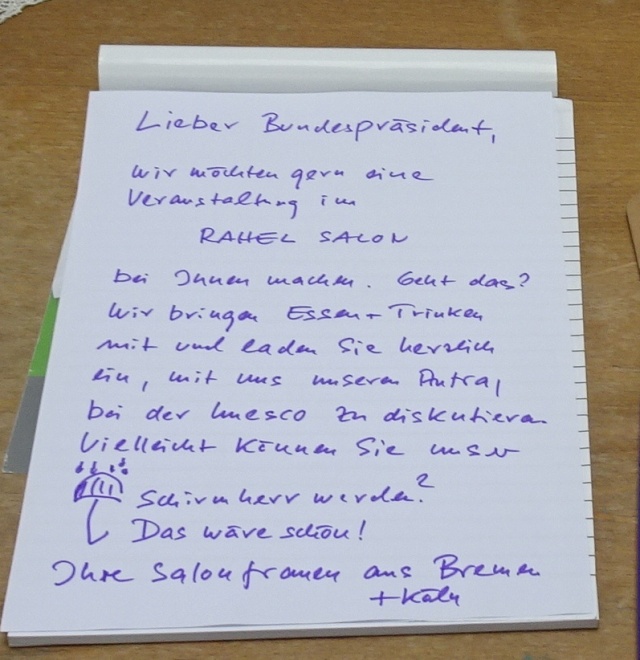 Lieber Bundespräsident,
wir möchten gern eine
Veranstaltung im
RAHEL SALON
bei Ihnen machen. Geht das?
Wir bringen Essen + Trinken
mit und laden Sie herzlich
ein, mit uns unseren Antrag
bei der Unesco zu diskutieren
Vielleicht können Sie unser
Schirmherr werden?
Das wäre schön!
Ihre Salonfrauen aus Bremen
+ Köln